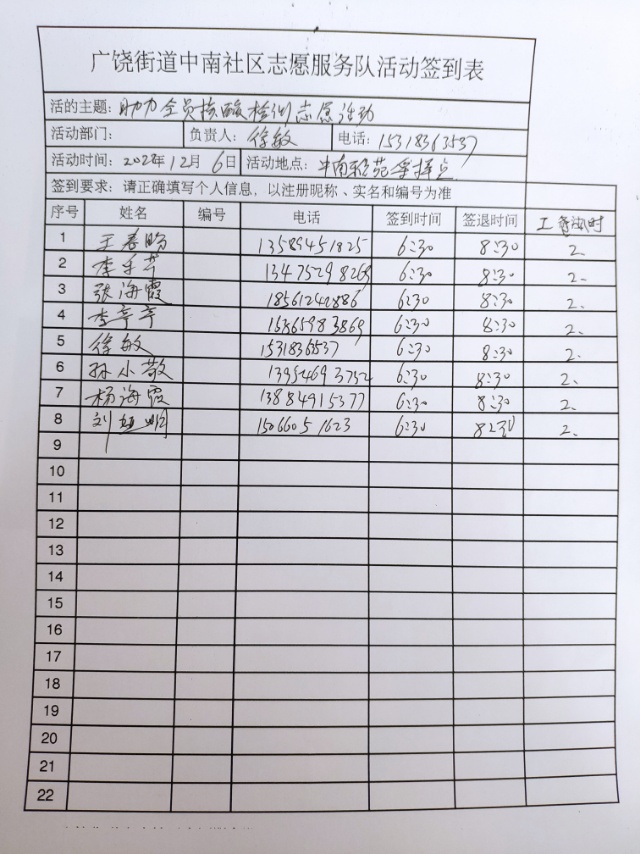 广饶街道中南社区志愿服务队活动签到表
活的主题: 助力全员核酸检测志愿活动
活动部门: 负责人: 徐敏 电话: 15318363537
活动时间: 2022年12月6日 活动地点:
签到要求: 请正确填写个人信息，以注册昵称、实名和编号为准
序号 姓名 编号 电话 签到时间 签退时间
1 王春盼 13589451825 6:30 8:30 2.
2 李 13475298269 6:30 8:30 2.
3 张海霞 18561242886 6:30 8:30 2.
4 李 15865983869 6:30 8:30 2.
5 徐敏 1531836537 6:30 8:30 2.
6 孙小敬 13954693754 6:30 8:30 2.
7 杨海霞 13884915377 6:30 8:30 2.
8 刘 明 15066051623 6:30 8:30 2.
9
10
11
12
13
14
15
16
17
18
19
20
21
22